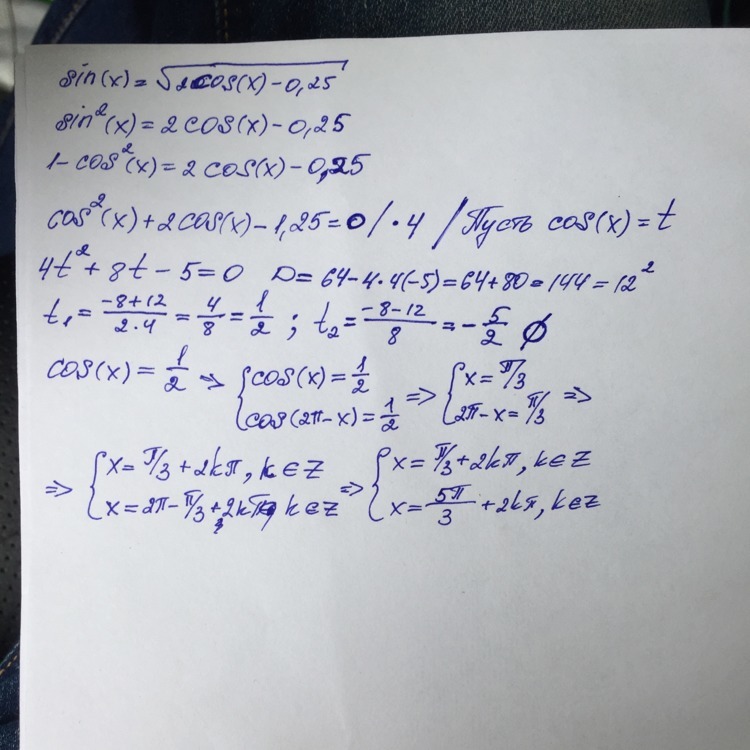 sin(x) = √(2cos(x) − 0,25)
sin²(x) = 2cos(x) − 0,25
1 − cos²(x) = 2cos(x) − 0,25
cos²(x) + 2cos(x) − 1,25 = 0 / · 4 / Пусть cos(x) = t
4t² + 8t − 5 = 0 D = 64 − 4 · 4(−5) = 64 + 80 = 144 = 12²
t₁ = (−8 + 12)/(2 · 4) = 4/8 = 1/2 ; t₂ = (−8 − 12)/8 = − 5/2 ∅
cos(x) = 1/2 => { cos(x) = 1/2 ; cos(2π − x) = 1/2 => { x = π/3 ; 2π − x = π/3 =>
=> { x = π/3 + 2kπ, k ∈ Z ; x = 2π − π/3 + 2kπ, k ∈ Z => { x = π/3 + 2kπ, k ∈ Z ; x = 5π/3 + 2kπ, k ∈ Z